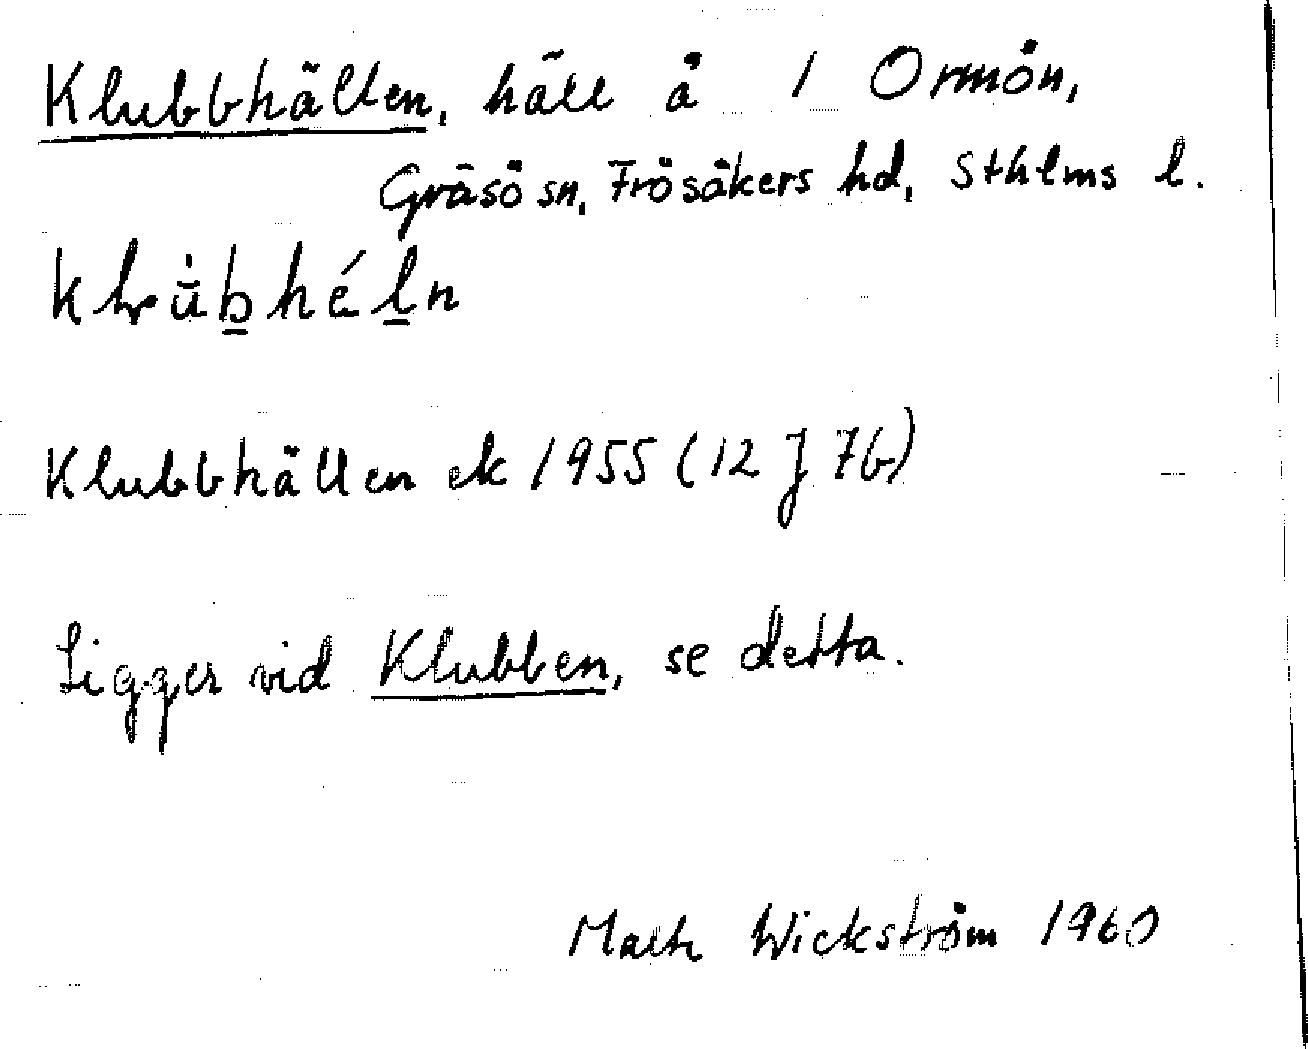 Klubbhällen, häll å 1 Ormön,
Gräsö sn, Frösåkers hd, Sthlms l.
Klubbhällen ek 1955 (12 J 7b)
Ligger vid Klubben, se detta.
Wickström 1960